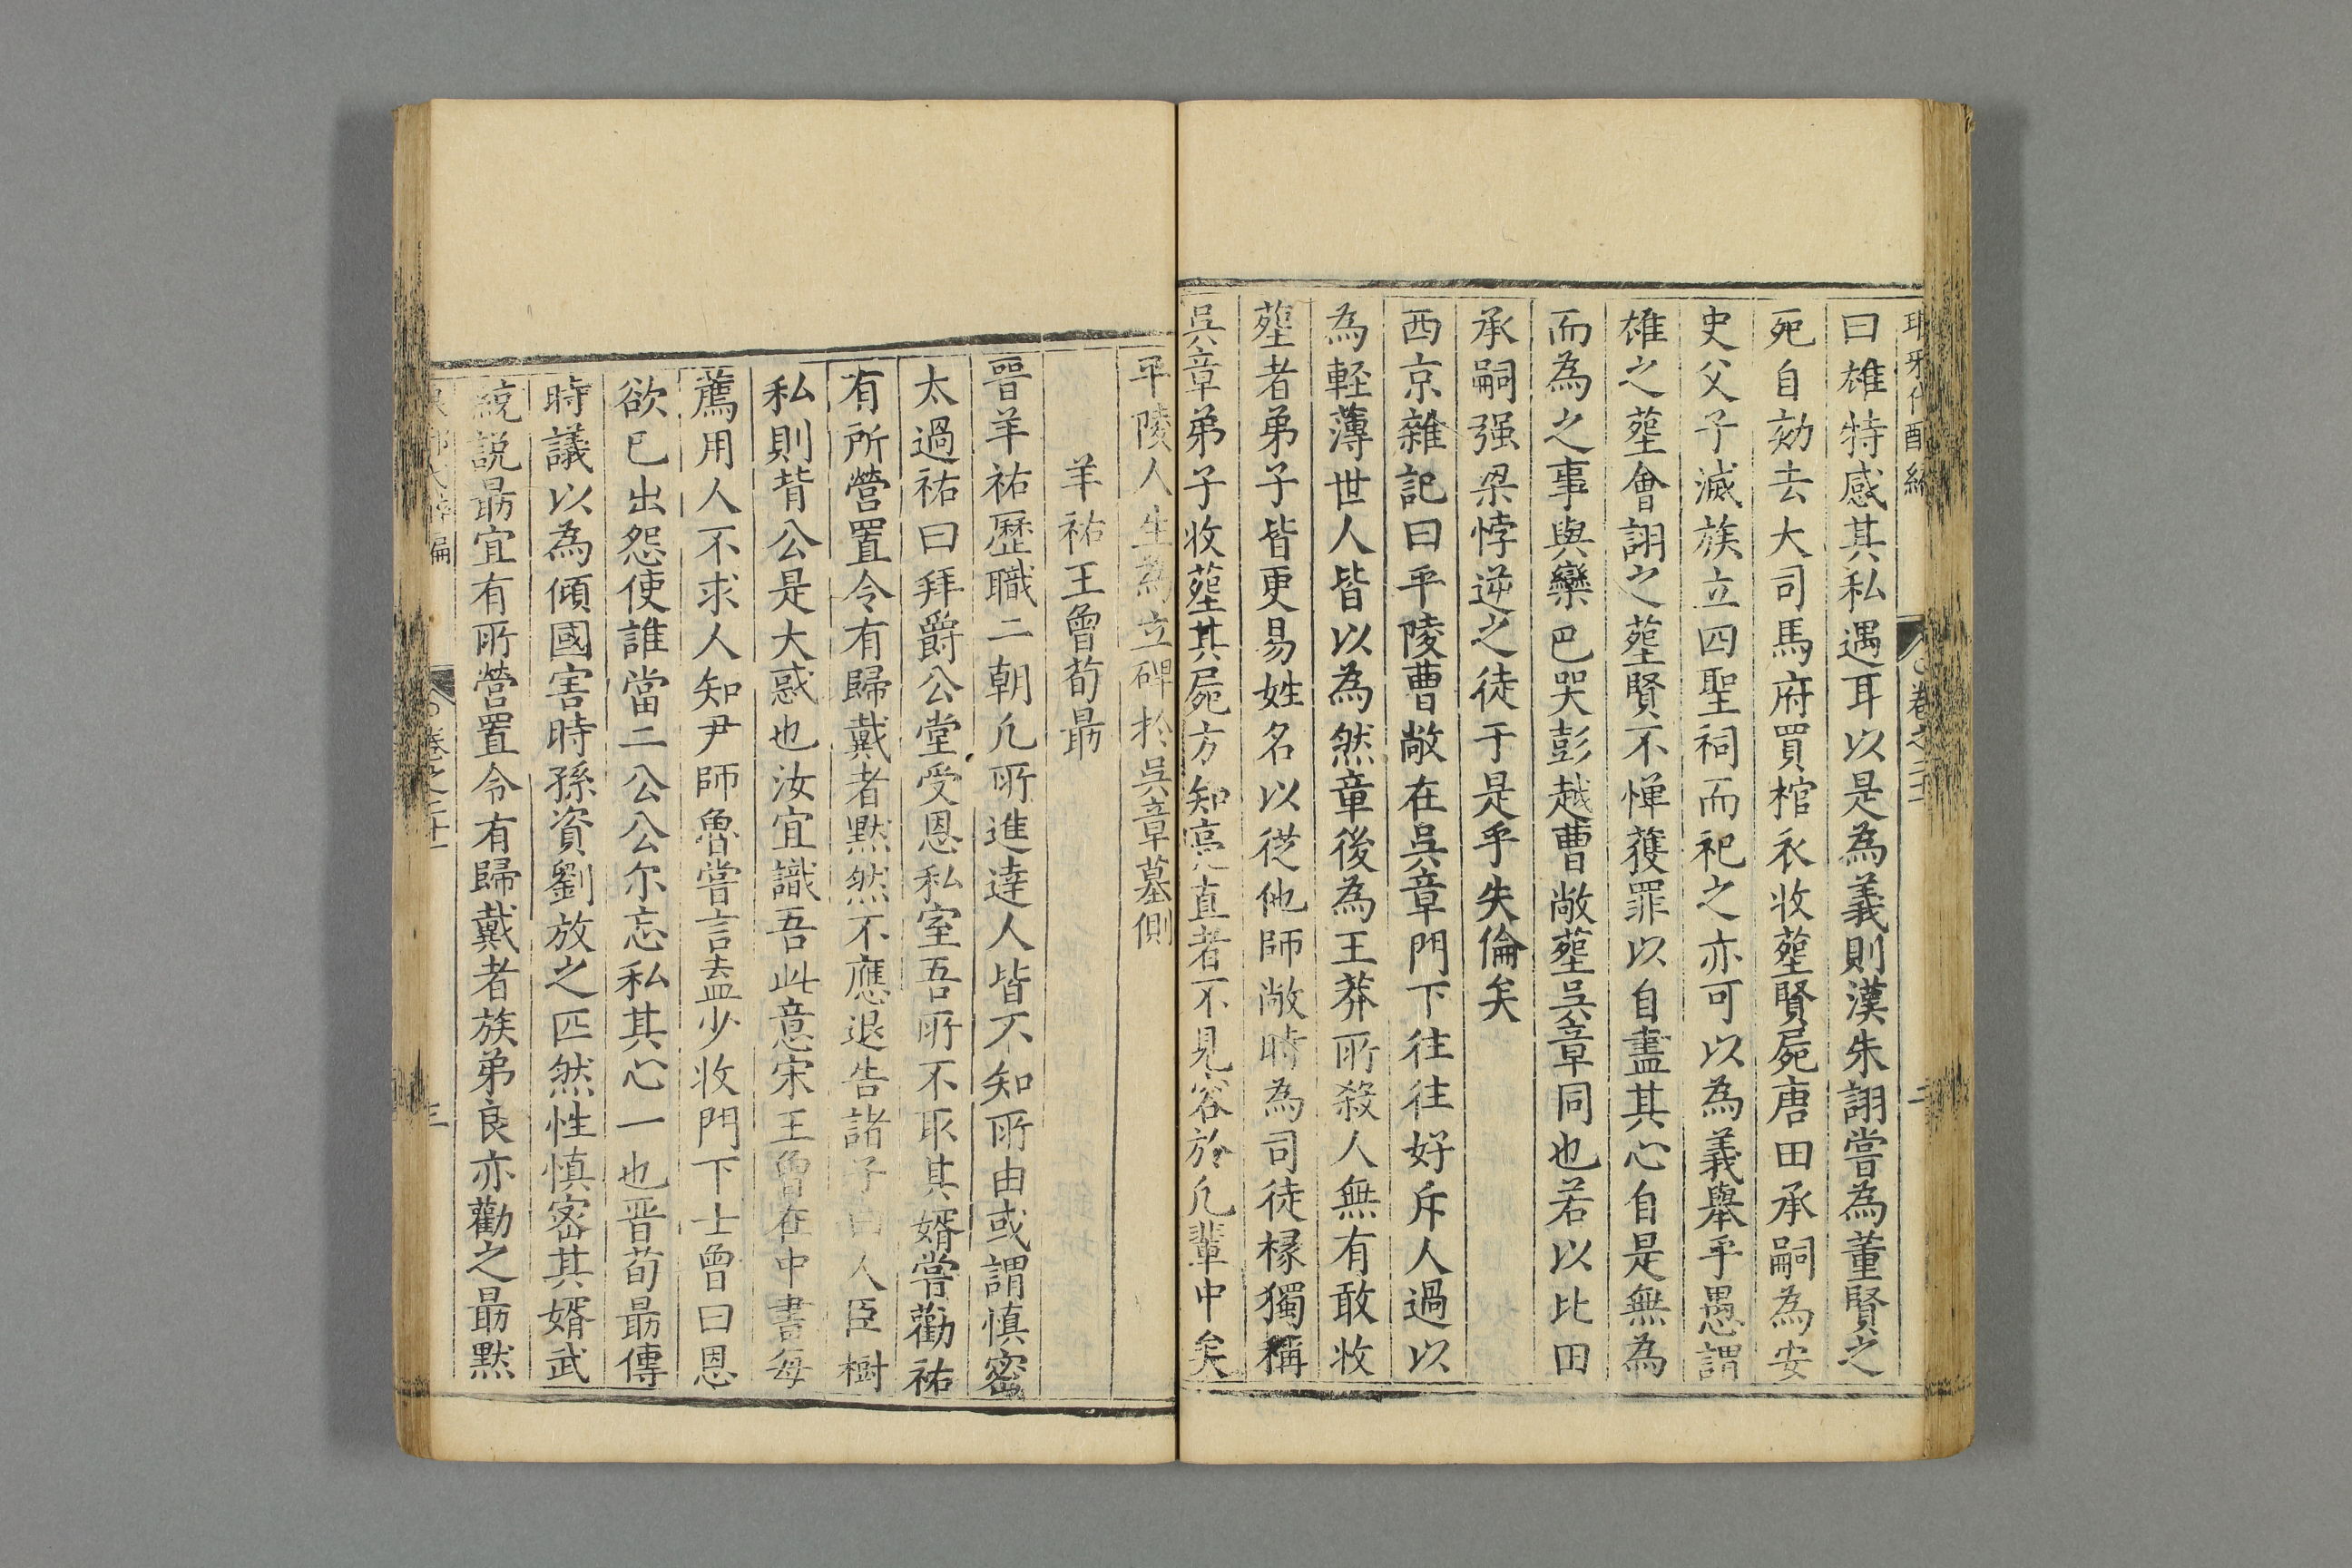 曰雄特感其私遇耳以是為義則漢朱詡嘗為董賢之
死自劾去大司馬府買棺衣收塟賢屍唐田承嗣為安
史父子滅族立四聖祠而祀之亦可以為義舉乎愚謂
雄之塟會詡之塟賢不惮獲罪以自盡其心自是無為
而為之事與欒巴哭彭越曹敞塟吳章同也若以比田
承嗣强梁悖逆之徒于是乎失倫矣
西京雜記曰平陵曹敞在吳章門下往往好斥人過以
為軽薄世人皆以為然章後為王莽所殺人無有敢收
塟者弟子皆更易姓名以從他師敞時為司徒椽獨稱
吳章弟子收塟其屍方知亮直者不見容於凡輩中矣
平陵人生為立碑於吳章墓側
羊祐王曾荀最
晉羊祐歷職二朝凡所進達人皆不知所由或謂慎密
太過祐曰拜爵公堂受恩私室吾所不取其婿嘗勸祐
有所營置令有歸戴者黙然不應退告諸子曰人臣樹
私則背公是大惑也汝宜識吾此意宋王曾在中書每
薦用人不求人知尹師魯嘗言盍少收門下士曾曰恩
欲已出怨使誰當二公公尔忘私其心一也晋荀最傳
時議以為傾國害時孫資劉放之匹然性慎宻其婿武
統説最宜有所營置令有歸戴者族弟良亦勸之最黙
卷之二十
三